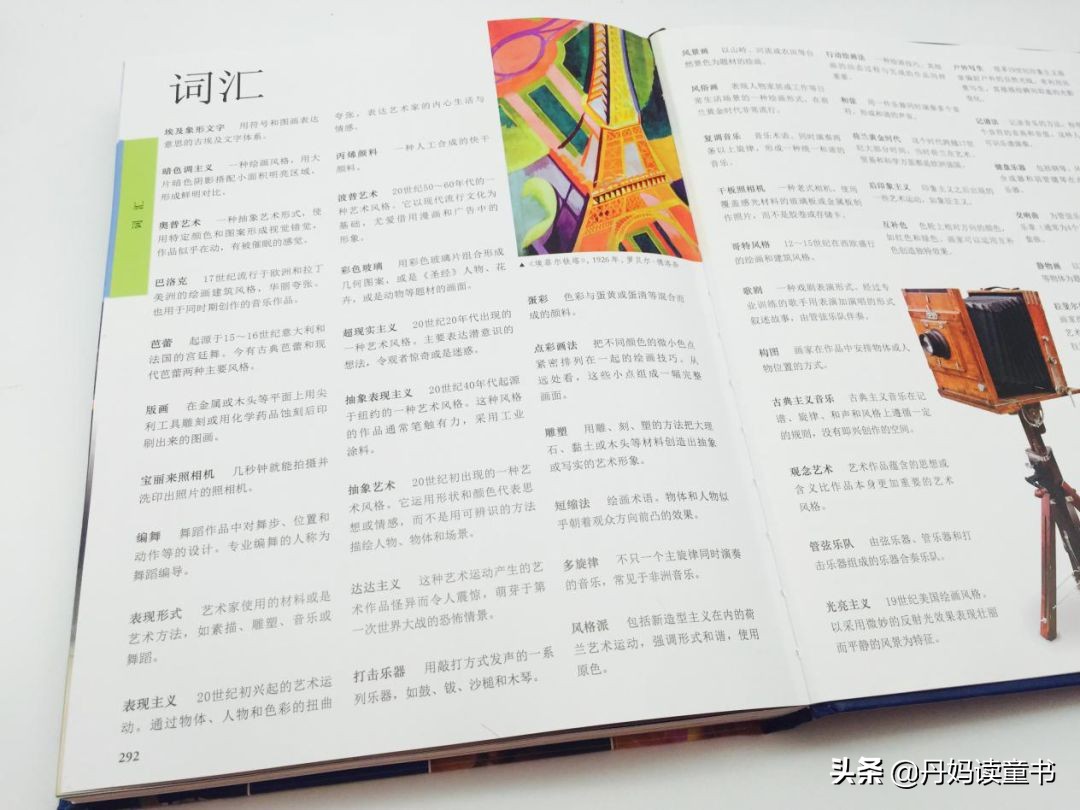 词汇
词汇
埃及象形文字 用符号和图画表达
意思的古埃及文字体系。
暗色调主义 一种绘画风格，用大
片暗色阴影搭配小面积明亮区域，
形成鲜明对比。
奥普艺术 一种抽象艺术形式，使
用特定颜色和图案形成视觉错觉，
作品似乎在动，有被催眠的感觉。
巴洛克 17世纪流行于欧洲和拉丁
美洲的绘画建筑风格，华丽夸张，
也用于同时期创作的音乐作品。
芭蕾 起源于15～16世纪意大利和
法国的宫廷舞。今有古典芭蕾和现
代芭蕾两种主要风格。
版画 在金属或木头等平面上用尖
利工具雕刻或用化学药品蚀刻后印
刷出来的图画。
宝丽来照相机 几秒钟就能拍摄并
洗印出照片的照相机。
编舞 舞蹈作品中对舞步、位置和
动作等的设计。专业编舞的人称为
舞蹈编导。
表现形式 艺术家使用的材料或是
艺术方法，如素描、雕塑、音乐或
舞蹈。
表现主义 20世纪初兴起的艺术运
动。通过物体、人物和色彩的扭曲
292
夸张，表达艺术家的内心生活与
情感。
丙烯颜料 一种人工合成的快干
颜料。
波普艺术 20世纪50～60年代的一
种艺术风格。它以现代流行文化为
基础，尤爱借用漫画和广告中的
形象。
彩色玻璃 用彩色玻璃片组合形成
几何图案，或是《圣经》人物、花
卉，或是动物等题材的画面。
超现实主义 20世纪20年代出现的
一种艺术风格。主要表达潜意识的
想法，令观者惊奇或是迷惑。
抽象表现主义 20世纪40年代起源
于纽约的一种艺术风格。这种风格
的作品通常笔触有力，采用工业
涂料。
抽象艺术 20世纪初出现的一种艺
术风格。它运用形状和颜色代表思
想或情感，而不是用可辨识的方法
描绘人物、物体和场景。
达达主义 这种艺术运动产生的艺
术作品怪异而令人震惊，萌芽于第
一次世界大战的恐怖情景。
打击乐器 用敲打方式发声的一系
列乐器，如鼓、钹、沙槌和木琴。
▲《埃菲尔铁塔》，1926年，罗贝尔·德洛奈
蛋彩 色彩与蛋黄或蛋清等混合而
成的颜料。
点彩画法 把不同颜色的微小色点
紧密排列在一起的绘画技巧。从
远处看，这些小点组成一幅完整
画面。
雕塑 用雕、刻、塑的方法把大理
石、黏土或木头等材料创造出抽象
或写实的艺术形象。
短缩法 绘画术语。物体和人物似
乎朝着观众方向前凸的效果。
多旋律 不只一个主旋律同时演奏
的音乐，常见于非洲音乐。
风格派 包括新造型主义在内的荷
兰艺术运动，强调形式和谐，使用
原色。
风景画 以山岭、河流或农田等自
然景色为题材的绘画。
风俗画 表现人物家居或工作等日
常生活场景的一种绘画形式，在荷
兰黄金时代非常流行。
复调音乐 音乐术语。同时演奏两
条以上旋律，形成一种统一和谐的
音乐。
干板照相机 一种老式相机，使用
覆盖感光材料的玻璃板或金属板创
作照片，而不是胶卷或存储卡。
哥特风格 12～15世纪在西欧盛行
的绘画和建筑风格。
歌剧 一种戏剧表演形式。经过专
业训练的歌手用表演加演唱的形式
叙述故事，由管弦乐队伴奏。
构图 画家在作品中安排物体或人
物位置的方式。
古典主义音乐 古典主义音乐在记
谱、旋律、和声和风格上遵循一定
的规则，没有即兴创作的空间。
观念艺术 艺术作品蕴含的思想或
含义比作品本身更加重要的艺术
风格。
管弦乐队 由弦乐器、管乐器和打
击乐器组成的乐器合奏乐队。
光亮主义 19世纪美国绘画风格，
以采用微妙的反射光效果表现壮丽
而平静的风景为特征。
行动绘画法 一种绘画技巧，其绘
画的动态过程与完成的作品同样
重要。
和弦
荷兰黄金时代
后印象主义 印象主义之后出现的
一些艺术运动，如象征主义。
互补色 色轮上相对方向的颜色，
如红色和绿色。画家可以运用互补
色创造独特效果。
户外写生
记谱法
键盘乐器
交响曲
静物画
头条 @丹妈读童书